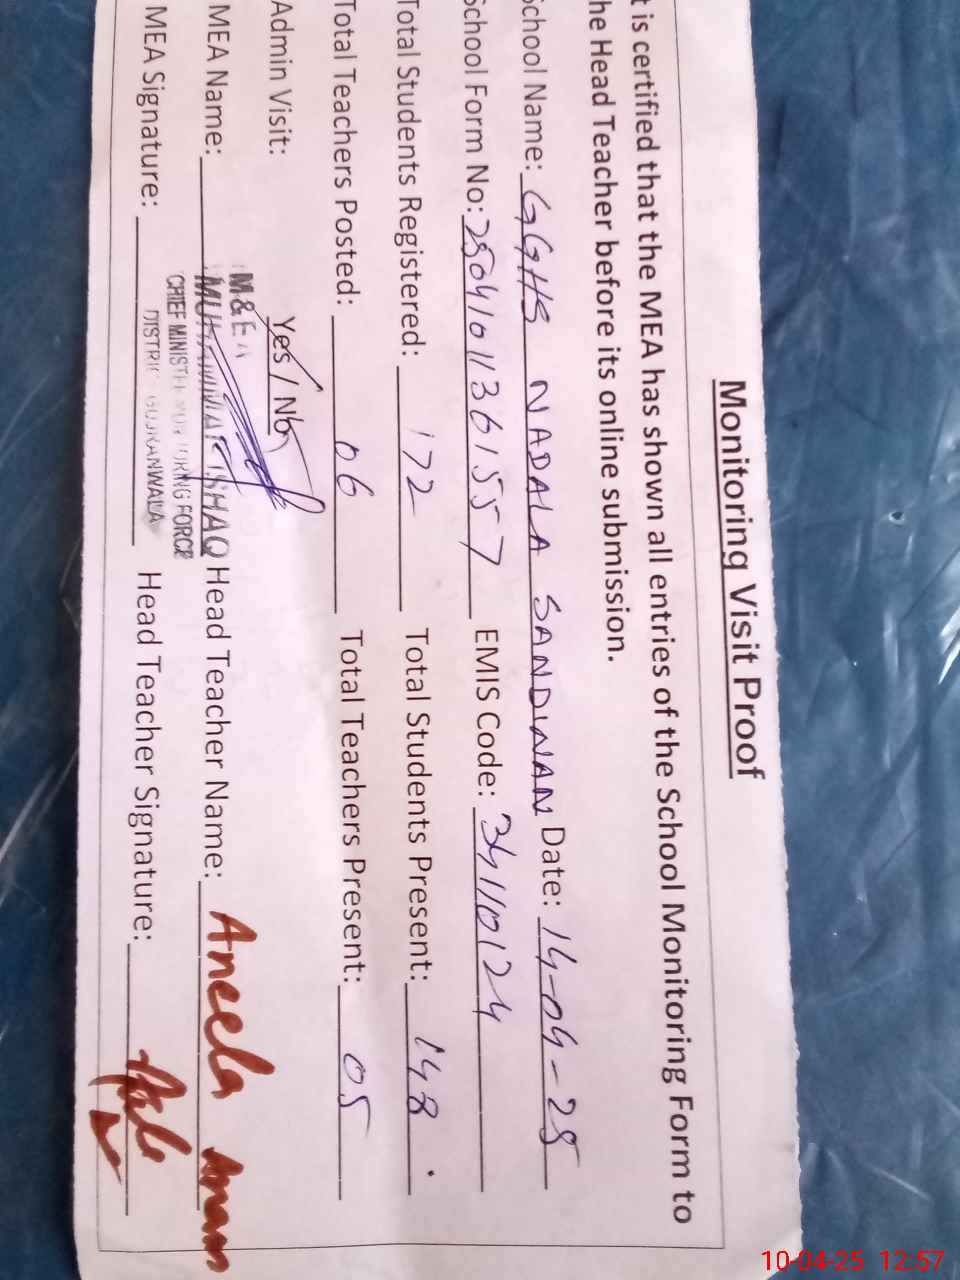 Monitoring Visit Proof
t is certified that the MEA has shown all entries of the School Monitoring Form to
he Head Teacher before its online submission.
School Name: GGHS NADALA SANDWAN Date: 14-04-25
School Form No: 25041011361557 EMIS Code: 34110124
Total Students Registered: 172 Total Students Present: 148
Total Teachers Posted: 06 Total Teachers Present: 05
Admin Visit: Yes / No
M & E A
MEA Name: MUHAMMAD ISHAQ Head Teacher Name: Aneela
CHIEF MINISTER MONITORING FORCE
DISTRICT GUJRANWALA
MEA Signature: Head Teacher Signature:
10-04-25 12:57